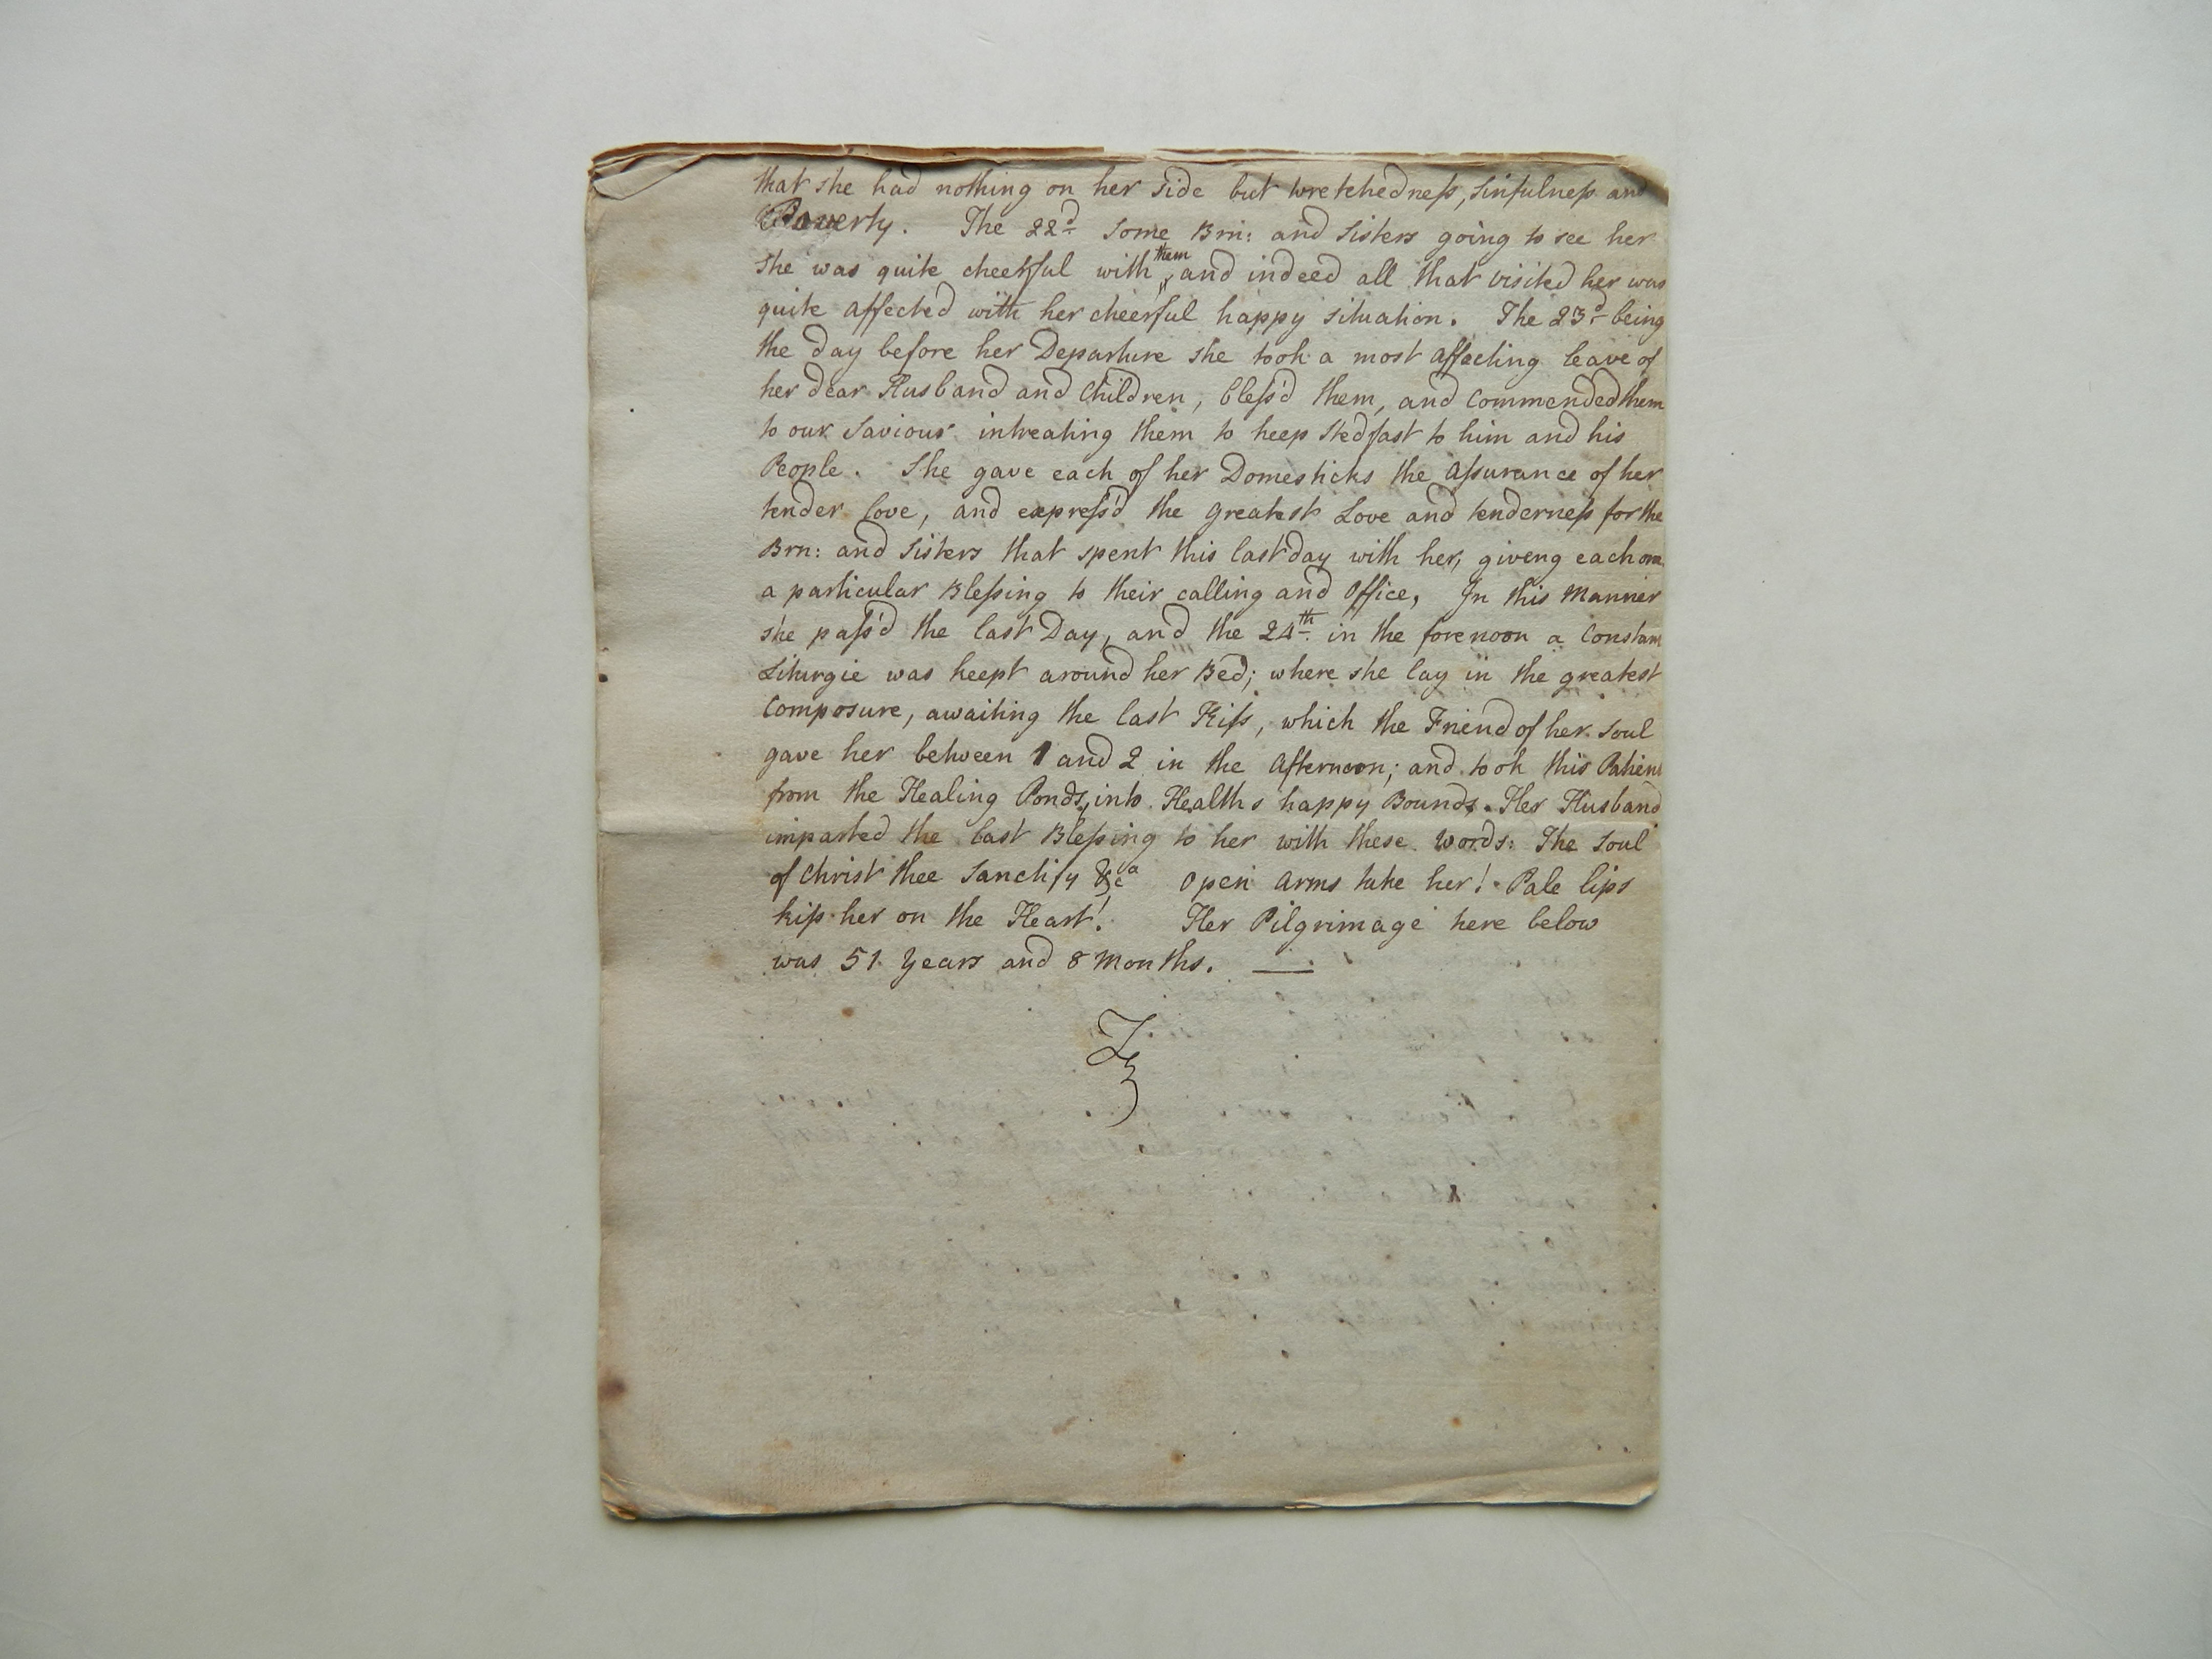 that she had nothing on her side but wretchedness, sinfulness and
Poverty. The 22d some Brn: and Sisters going to see her
she was quite cheerful with them and indeed all that visited her was
quite affected with her cheerful happy situation. The 23d being
the Day before her Departure she took a most affecting leave of
her dear Husband and Children, bless'd them, and commended them
to our Saviour intreating them to keep stedfast to him and his
People. She gave each of her Domesticks the assurance of her
tender love, and express'd the greatest Love and tenderness for the
Brn: and Sisters that spent this last day with her, giveng each one
a particular Blessing to their calling and Office, In this Manner
she pass'd the last Day, and the 24th in the forenoon a Constant
Liturgie was keept around her Bed; where she lay in the greatest
Composure, awaiting the last Kiss, which the Friend of her soul
gave her between 1 and 2 in the Afternoon; and took this Patient
from the Healing Ponds, into Healths happy Bounds. Her Husband
imparted the last Blessing to her with these words: The soul
of Christ thee Sanctify &ca Open Arms take her! Pale lips
kiss her on the Heart! Her Pilgrimage here below
was 51 Years and 8 Months. —